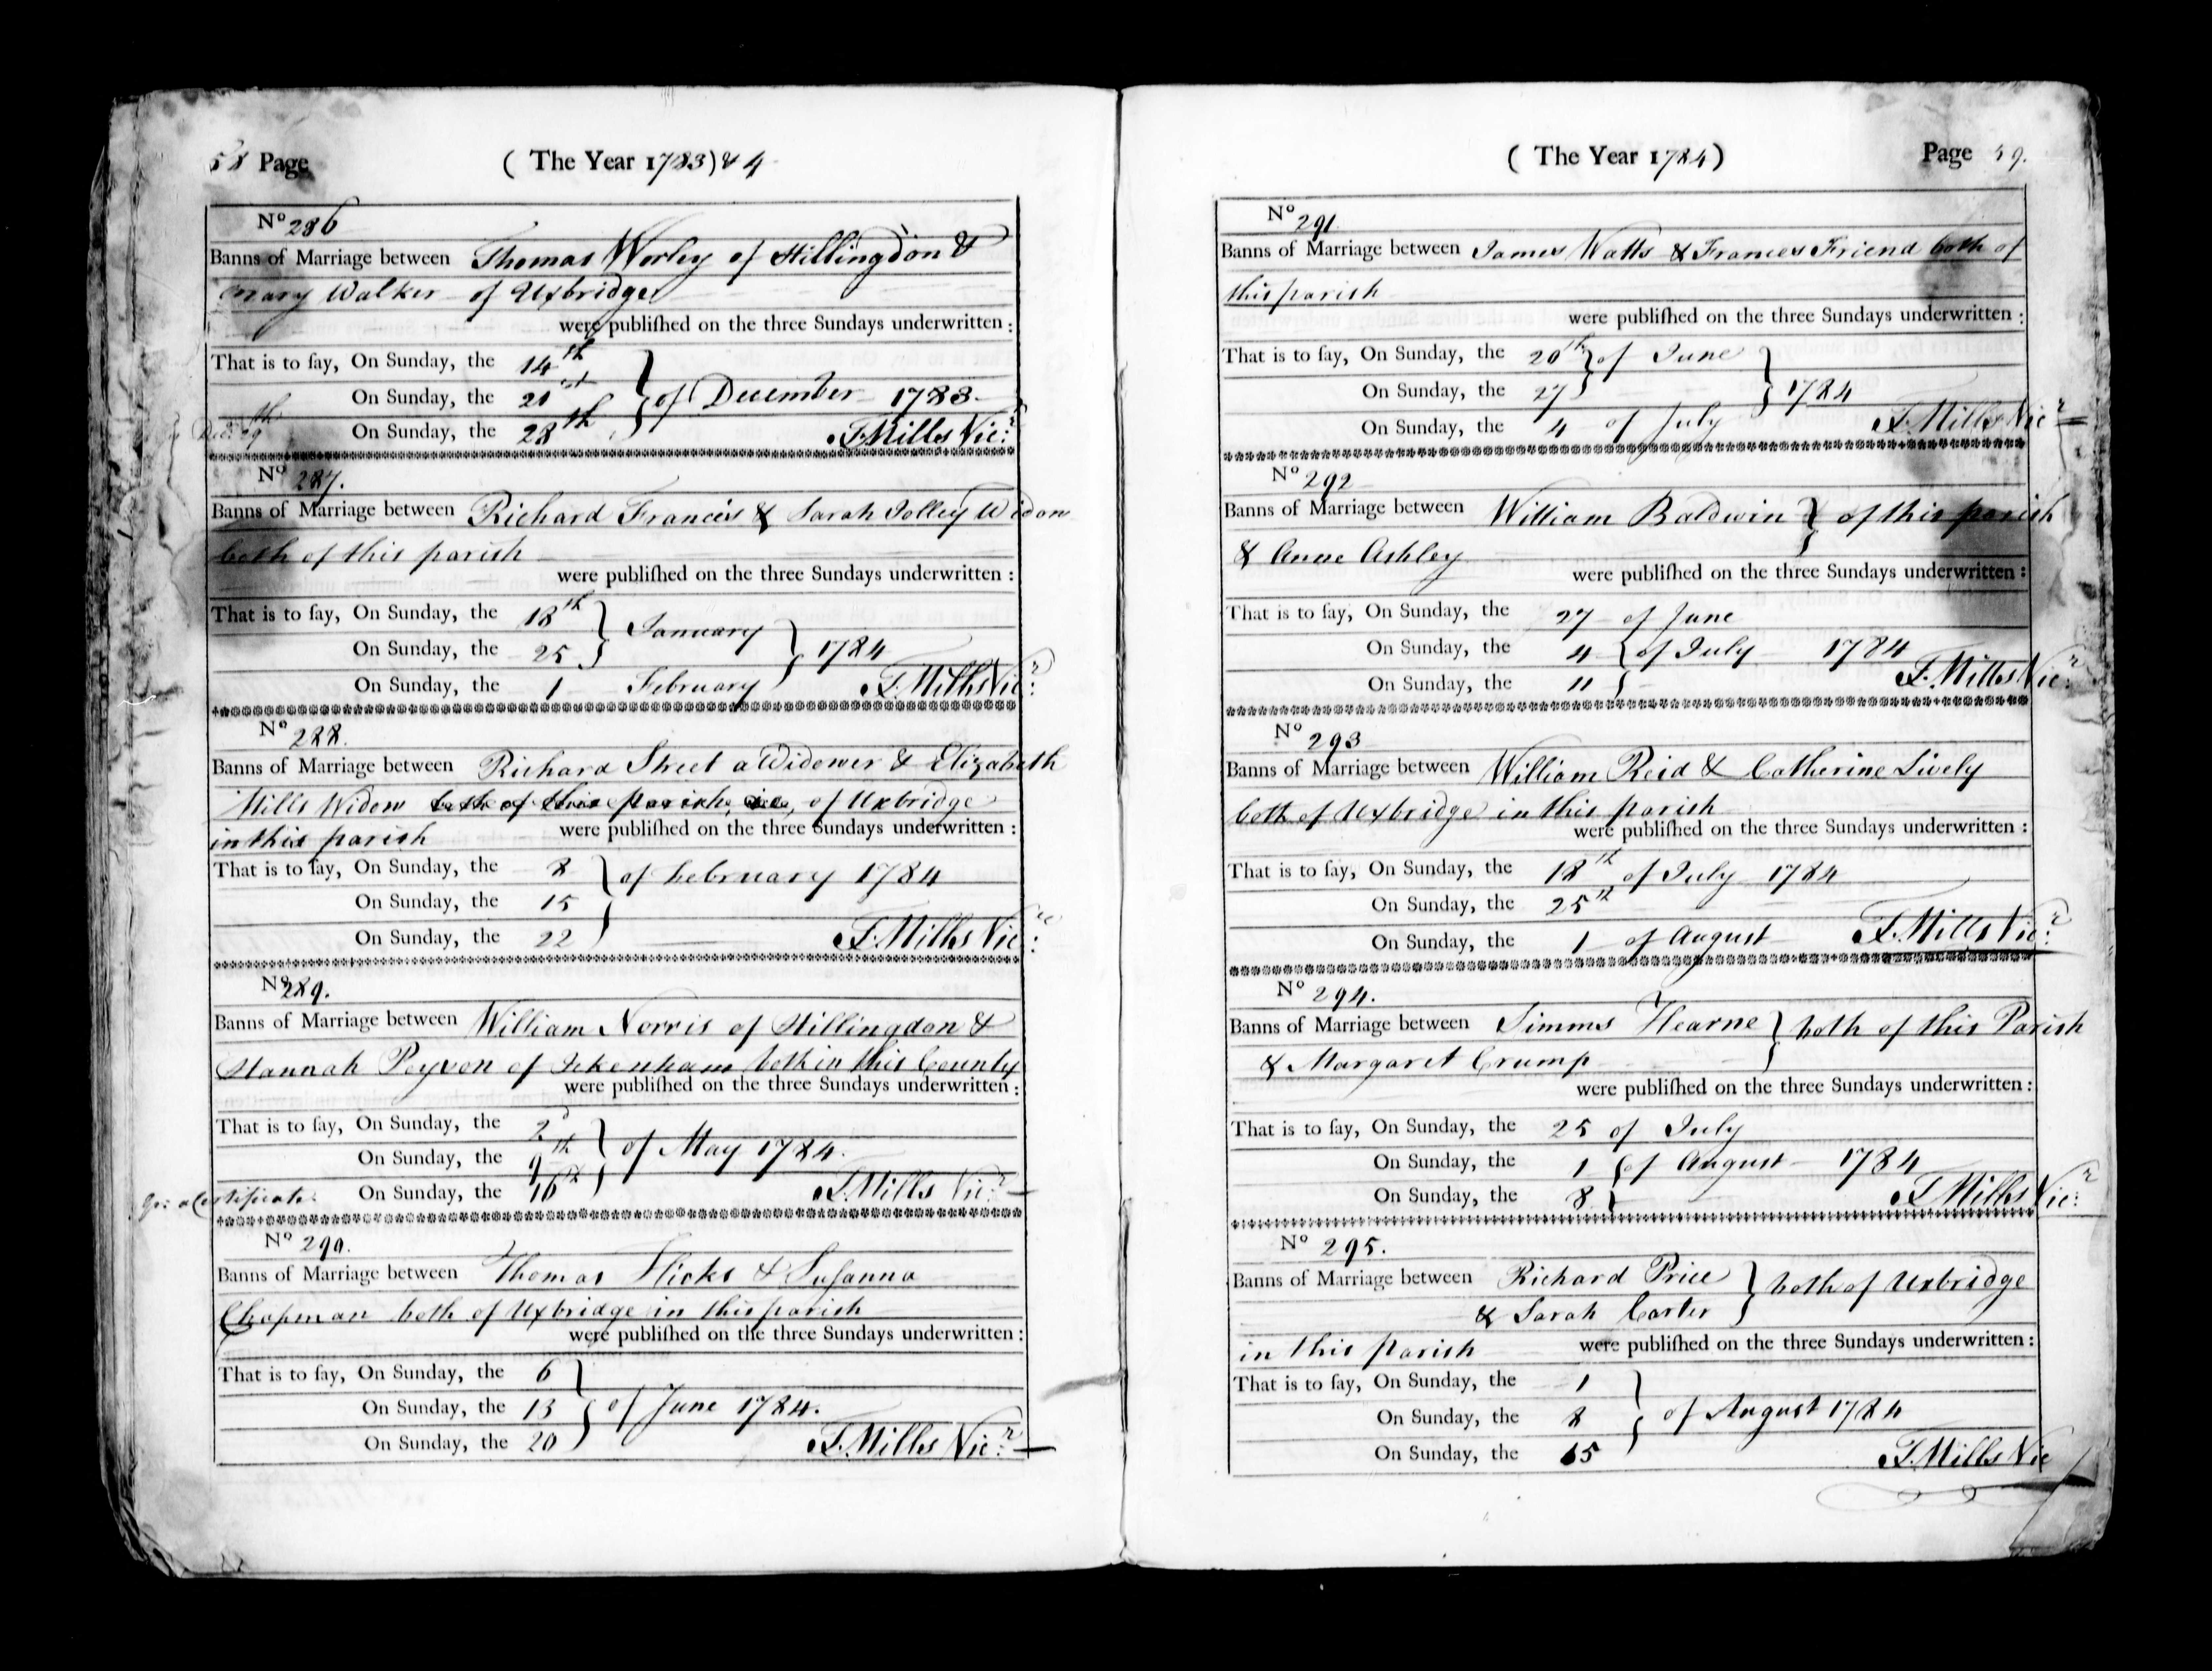 58 Page
( The Year 1783) & 4
No 286
Banns of Marriage between Thomas Worley of Hillingdon &
Mary Walker of Uxbridge
were publiſhed on the three Sundays underwritten :
That is to ſay, On Sunday, the 14th
On Sunday, the 21st } of December 1783.
Dec: 29th On Sunday, the 28th T. Mills Vic:r
No 287.
Banns of Marriage between Richard Francis & Sarah Jolley Widow
both of this parish
were publiſhed on the three Sundays underwritten :
That is to ſay, On Sunday, the 18th } January
On Sunday, the 25 } 1784
On Sunday, the 1 February T. Mills Vic:r
No 288.
Banns of Marriage between Richard Street a Widower & Elizabeth
Mills Widow both of this parish, of Uxbridge
in this parish were publiſhed on the three Sundays underwritten :
That is to ſay, On Sunday, the 8 } of February 1784
On Sunday, the 15
On Sunday, the 22 T. Mills Vic:
No 289.
Banns of Marriage between William Norris of Hillingdon &
Hannah Peyven of Ickenham both in this County
were publiſhed on the three Sundays underwritten :
That is to ſay, On Sunday, the 2d
On Sunday, the 9th } of May 1784.
a Certificate. On Sunday, the 16th T. Mills Vic:r
No 290.
Banns of Marriage between Thomas Hicks & Suſanna
Chapman both of Uxbridge in this parish
were publiſhed on the three Sundays underwritten :
That is to ſay, On Sunday, the 6
On Sunday, the 13 } of June 1784.
On Sunday, the 20 T. Mills Vic:r
( The Year 1784)
Page 59.
No 291
Banns of Marriage between James Watts & Frances Friend both of
this parish
were publiſhed on the three Sundays underwritten :
That is to ſay, On Sunday, the 20th } of June
On Sunday, the 27 } 1784
On Sunday, the 4 of July T. Mills Vic:r
No 292
Banns of Marriage between William Baldwin } of this parish
& Anne Ashley
were publiſhed on the three Sundays underwritten :
That is to ſay, On Sunday, the 27 of June
On Sunday, the 4 { of July 1784
On Sunday, the 11 T. Mills Vic:r
No 293
Banns of Marriage between William Reid & Catherine Lively
both of Uxbridge in this parish
were publiſhed on the three Sundays underwritten :
That is to ſay, On Sunday, the 18th of July 1784
On Sunday, the 25th
On Sunday, the 1 of August T. Mills Vic:r
No 294.
Banns of Marriage between Simms Hearne } both of this Parish
& Margaret Crump
were publiſhed on the three Sundays underwritten :
That is to ſay, On Sunday, the 25 of July
On Sunday, the 1 { of August 1784
On Sunday, the 8 T. Mills Vic:r
No 295.
Banns of Marriage between Richard Price } both of Uxbridge
& Sarah Carter
in this parish were publiſhed on the three Sundays underwritten :
That is to ſay, On Sunday, the 1
On Sunday, the 8 } of August 1784
On Sunday, the 15 T. Mills Vic